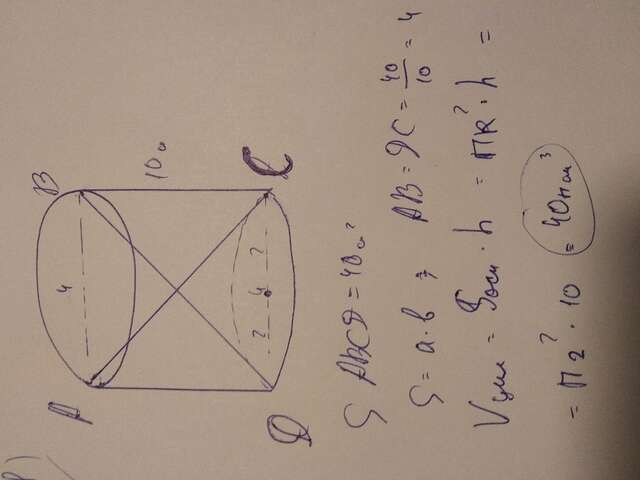 A
B
4
10 см
2 4 2
D
C
S ABCD = 40 см²
S = a · b ⇒ AB = DC = 40/10 = 4
Vцил = Sосн · h = ПR² · h =
= П2² · 10 = 40П см³